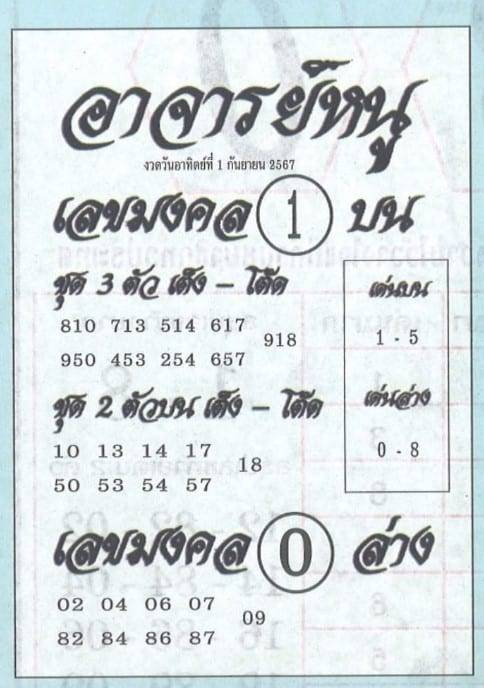 อาจารย์หนู
งวดวันอาทิตย์ที่ 1 กันยายน 2567
เลขมงคล 1 บน
ชุด 3 ตัว เต็ง – โต๊ด
810 713 514 617
918
950 453 254 657
เด่นบน
1 - 5
ชุด 2 ตัวบน เต็ง – โต๊ด
10 13 14 17
18
50 53 54 57
เด่นล่าง
0 - 8
เลขมงคล 0 ล่าง
02 04 06 07
09
82 84 86 87